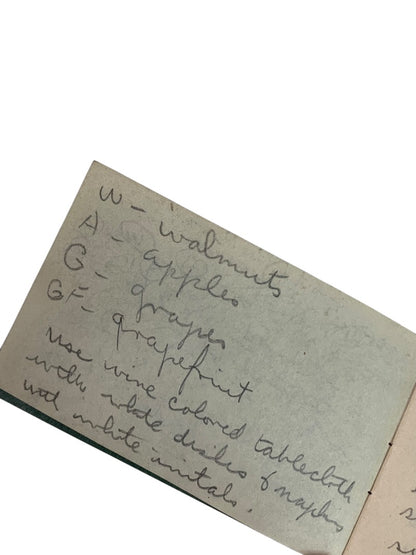 W - walnuts
A - apples
G - grapes
GF - grapefruit
Use wine colored tablecloth
with white dishes & napkins
wth white initals.